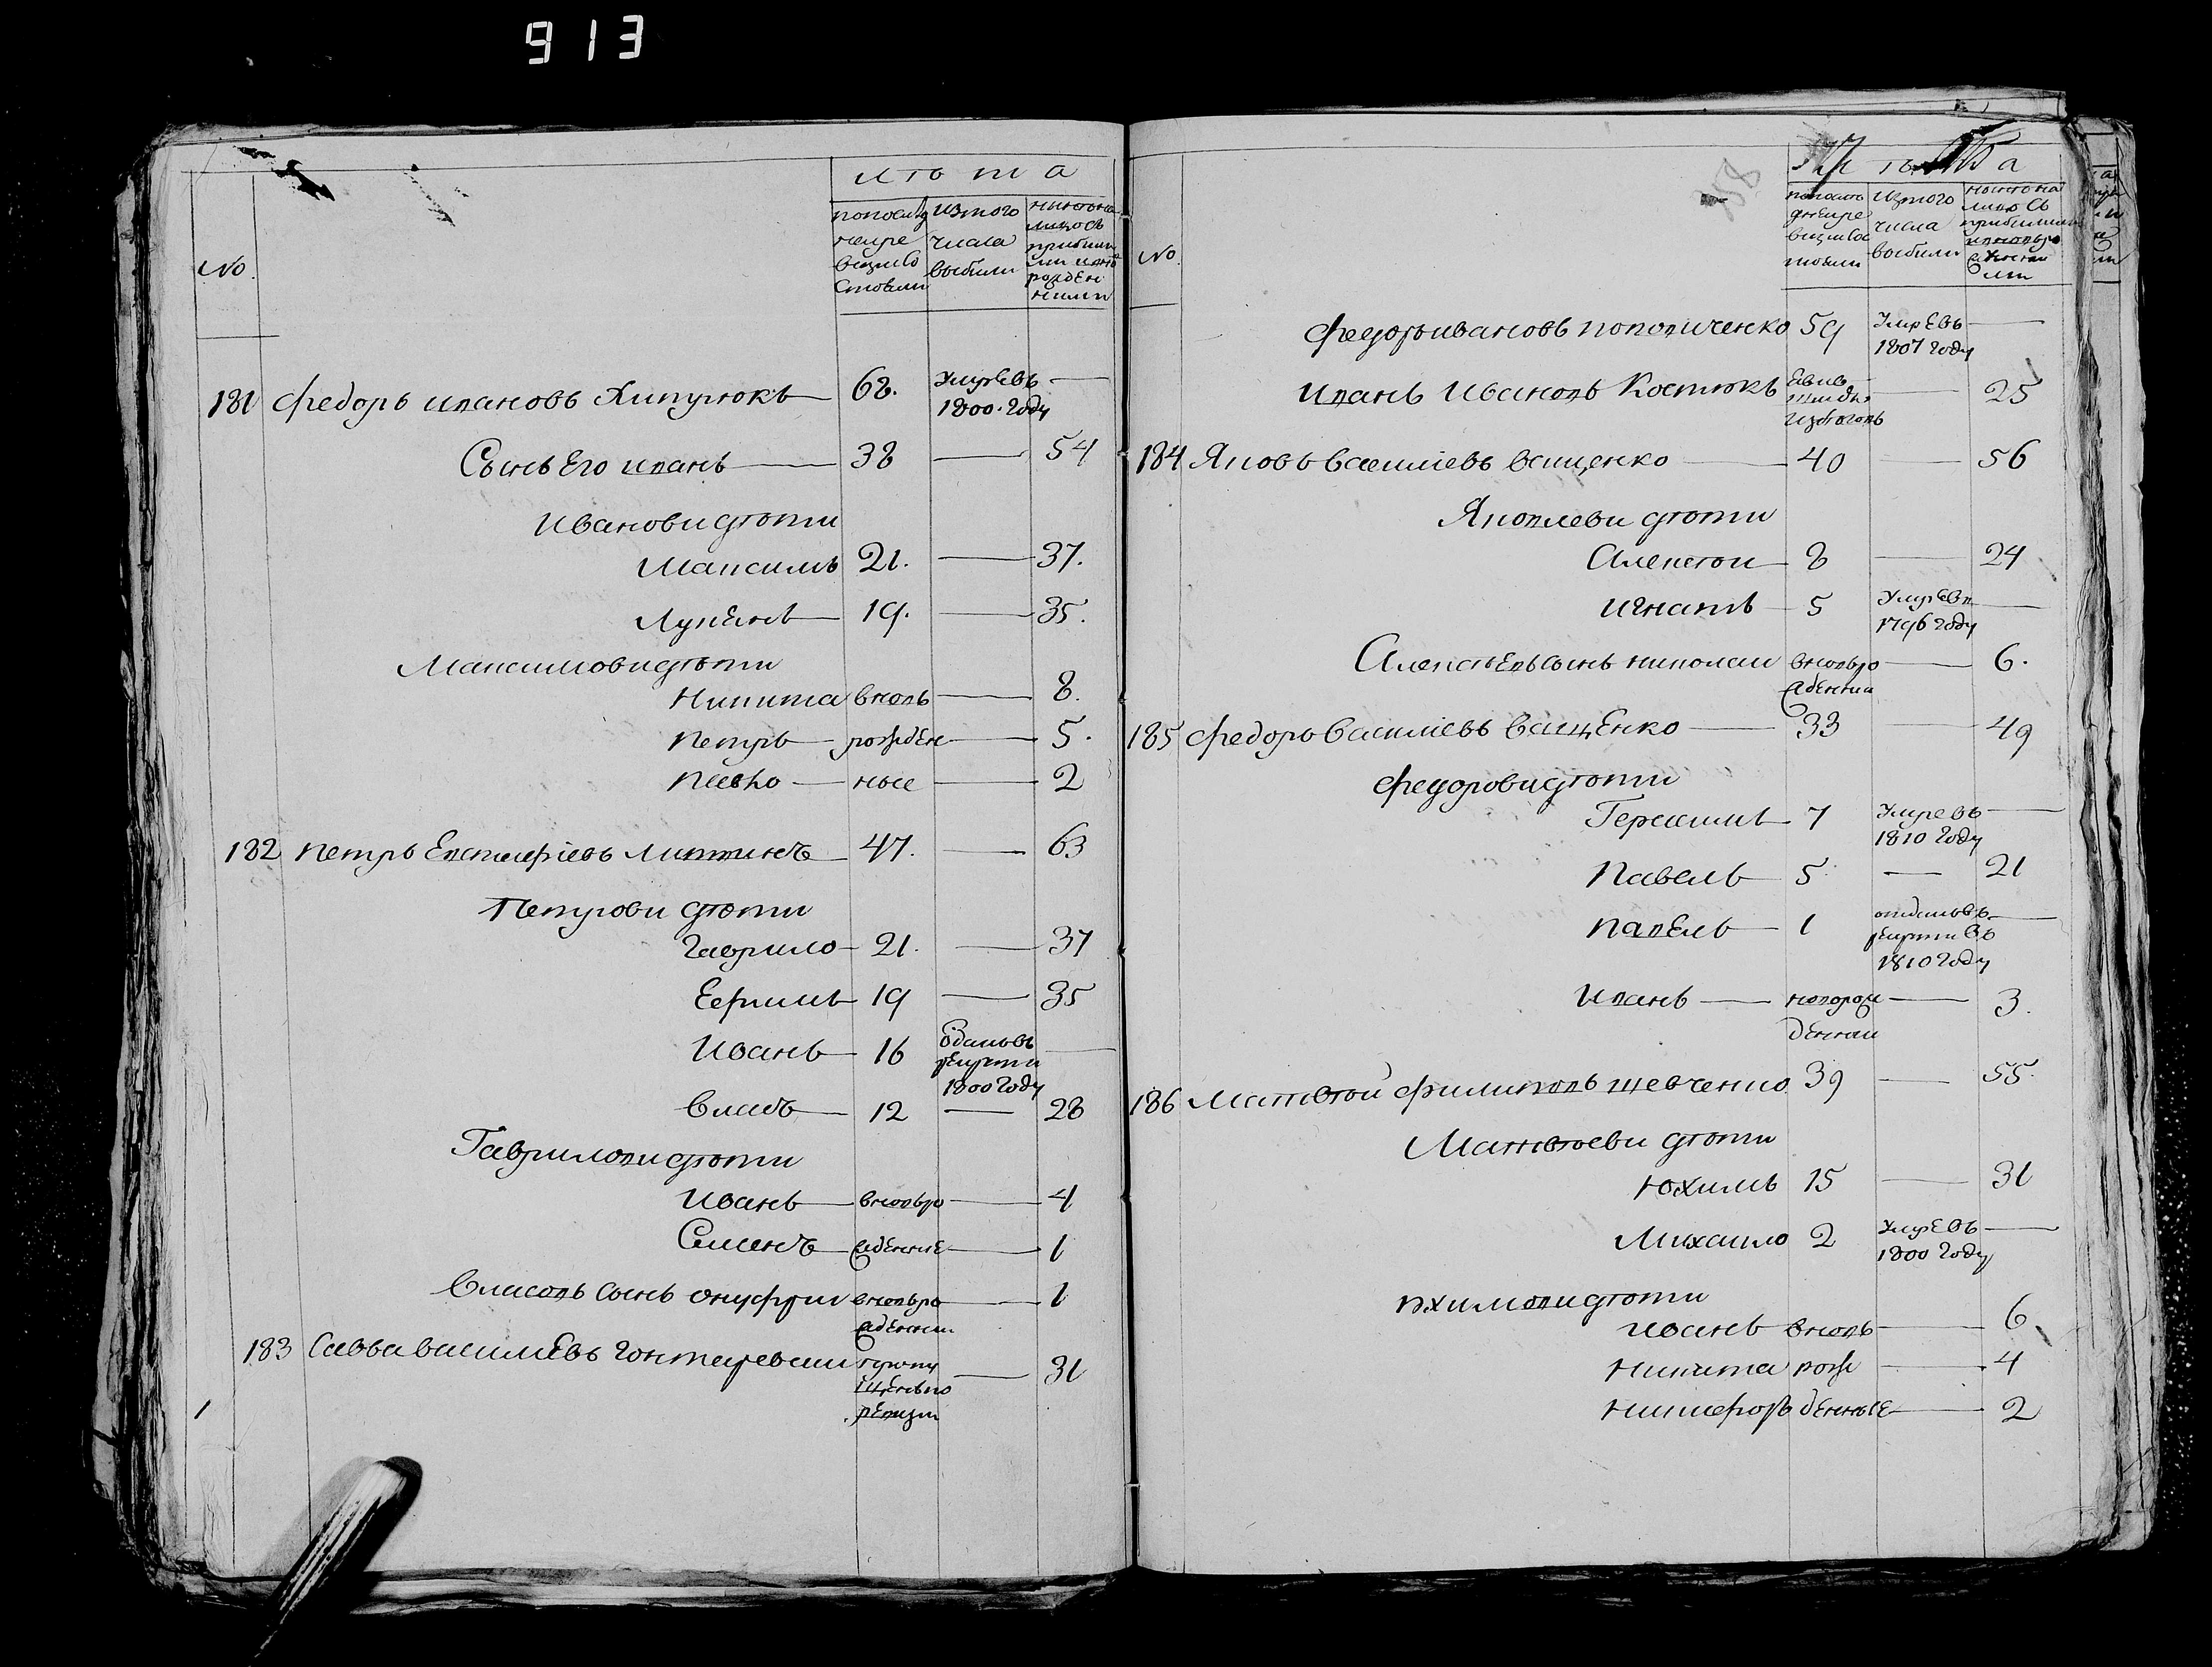 913
лѣта
по последней ревизiи состояли
изтого числа выбыли
ныне на лицо съ прибылими и новорожденними
No.
181 Федоръ ивановъ Хипутюкъ 68. Умревъ 1800. Году —
Сынъ Его иванъ 38 — 54
Ивановы дѣти
Максимъ 21. — 37.
Лукянъ 19. — 35.
Максимовы дѣти
Никита вновъ — 8.
Петръ рожден — 5.
Павло ные — 2
182 Петръ Евстафiевъ 47. — 63
Петровы дѣти
Гаврило 21. — 37
Ефимъ 19 — 35
Иванъ 16 1800 Году —
Власъ 12 — 28
Гавриловы дѣти
Иванъ вновьро — 4
Семенъ жденные — 1
Власовъ Сынъ онуфрiи вновьро — 1
жденни
183 Савва василиевъ — 31
ревизи
358
лѣта
No.
по последней ревизiи состояли
изтого числа выбыли
ныне на лицо съ прибылими и новорожденними
Федоръ ивановъ 59 Умревъ 1807 году —
Иванъ Ивановъ Костюкъ — 25
184 Яковъ василиевъ ващенко 40 — 56
Яковлевы дѣти
Алексѣи 8 — 24
игнатъ 5 Умревъ 1796 году —
Алексѣевъ сынъ николаи вновьро — 6.
жденни
185 Федоръ Василиевъ ващенко 33 — 49
Федоровы дѣти
Герасимъ 7 Умревъ 1810 Году —
Павелъ 5 — 21
Павелъ 1 отданъ въ рекрути въ 1810 Году —
Иванъ новорож — 3.
денни
186 Матвѣй филиповъ шевченко 39 — 55.
Матвѣеви дѣти
Юхимъ 15 — 31
Михаило 2 Умревъ 1800 Году —
Юхимови дѣти
иванъ вновь — 6
Никита рож — 4
Никифоръ денные — 2